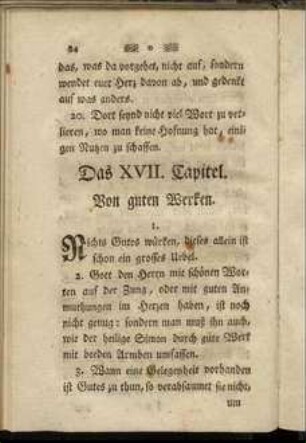 84
das, was da vorgehet, nicht auf, sondern
wendet euer Herz davon ab, und gedenkt
auf was anders.
20. Dort seynd nicht viel Wort zu ver-
lieren, wo man keine Hofnung hat, eini-
gen Nutzen zu schaffen.
Das XVII. Capitel.
Von guten Werken.
1.
Nichts Gutes würken, dieses allein ist
schon ein grosses Uebel.
2. Gott den Herrn mit schönen Wor-
ten auf der Zung, oder mit guten An-
muthungen im Herzen haben, ist noch
nicht genug: sondern man muß ihn auch,
wie der heilige Simon durch gute Werk
mit beeden Armben umfassen.
3. Wann eine Gelegenheit vorhanden
ist Gutes zu thun, so verabsaumet sie nicht,
um